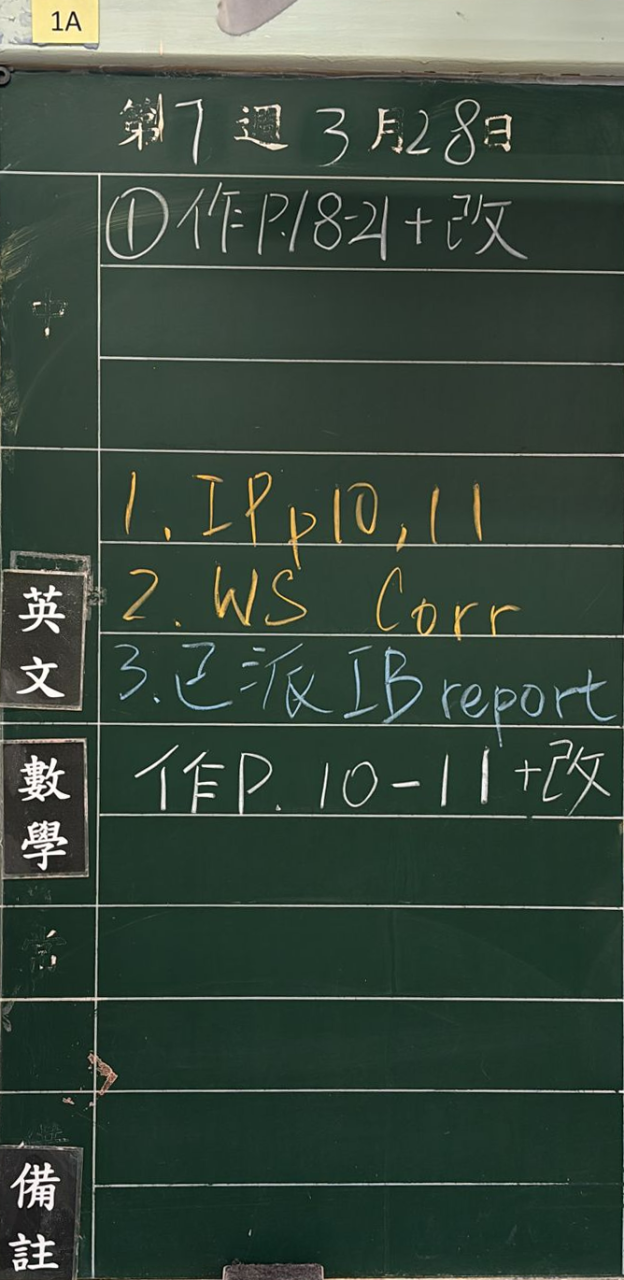 1A
第7週3月28日
中
①作P.18-21+改
英文
1. IP p10,11
2. WS Corr
3.已派IB report
數學
作P. 10-11+改
備註